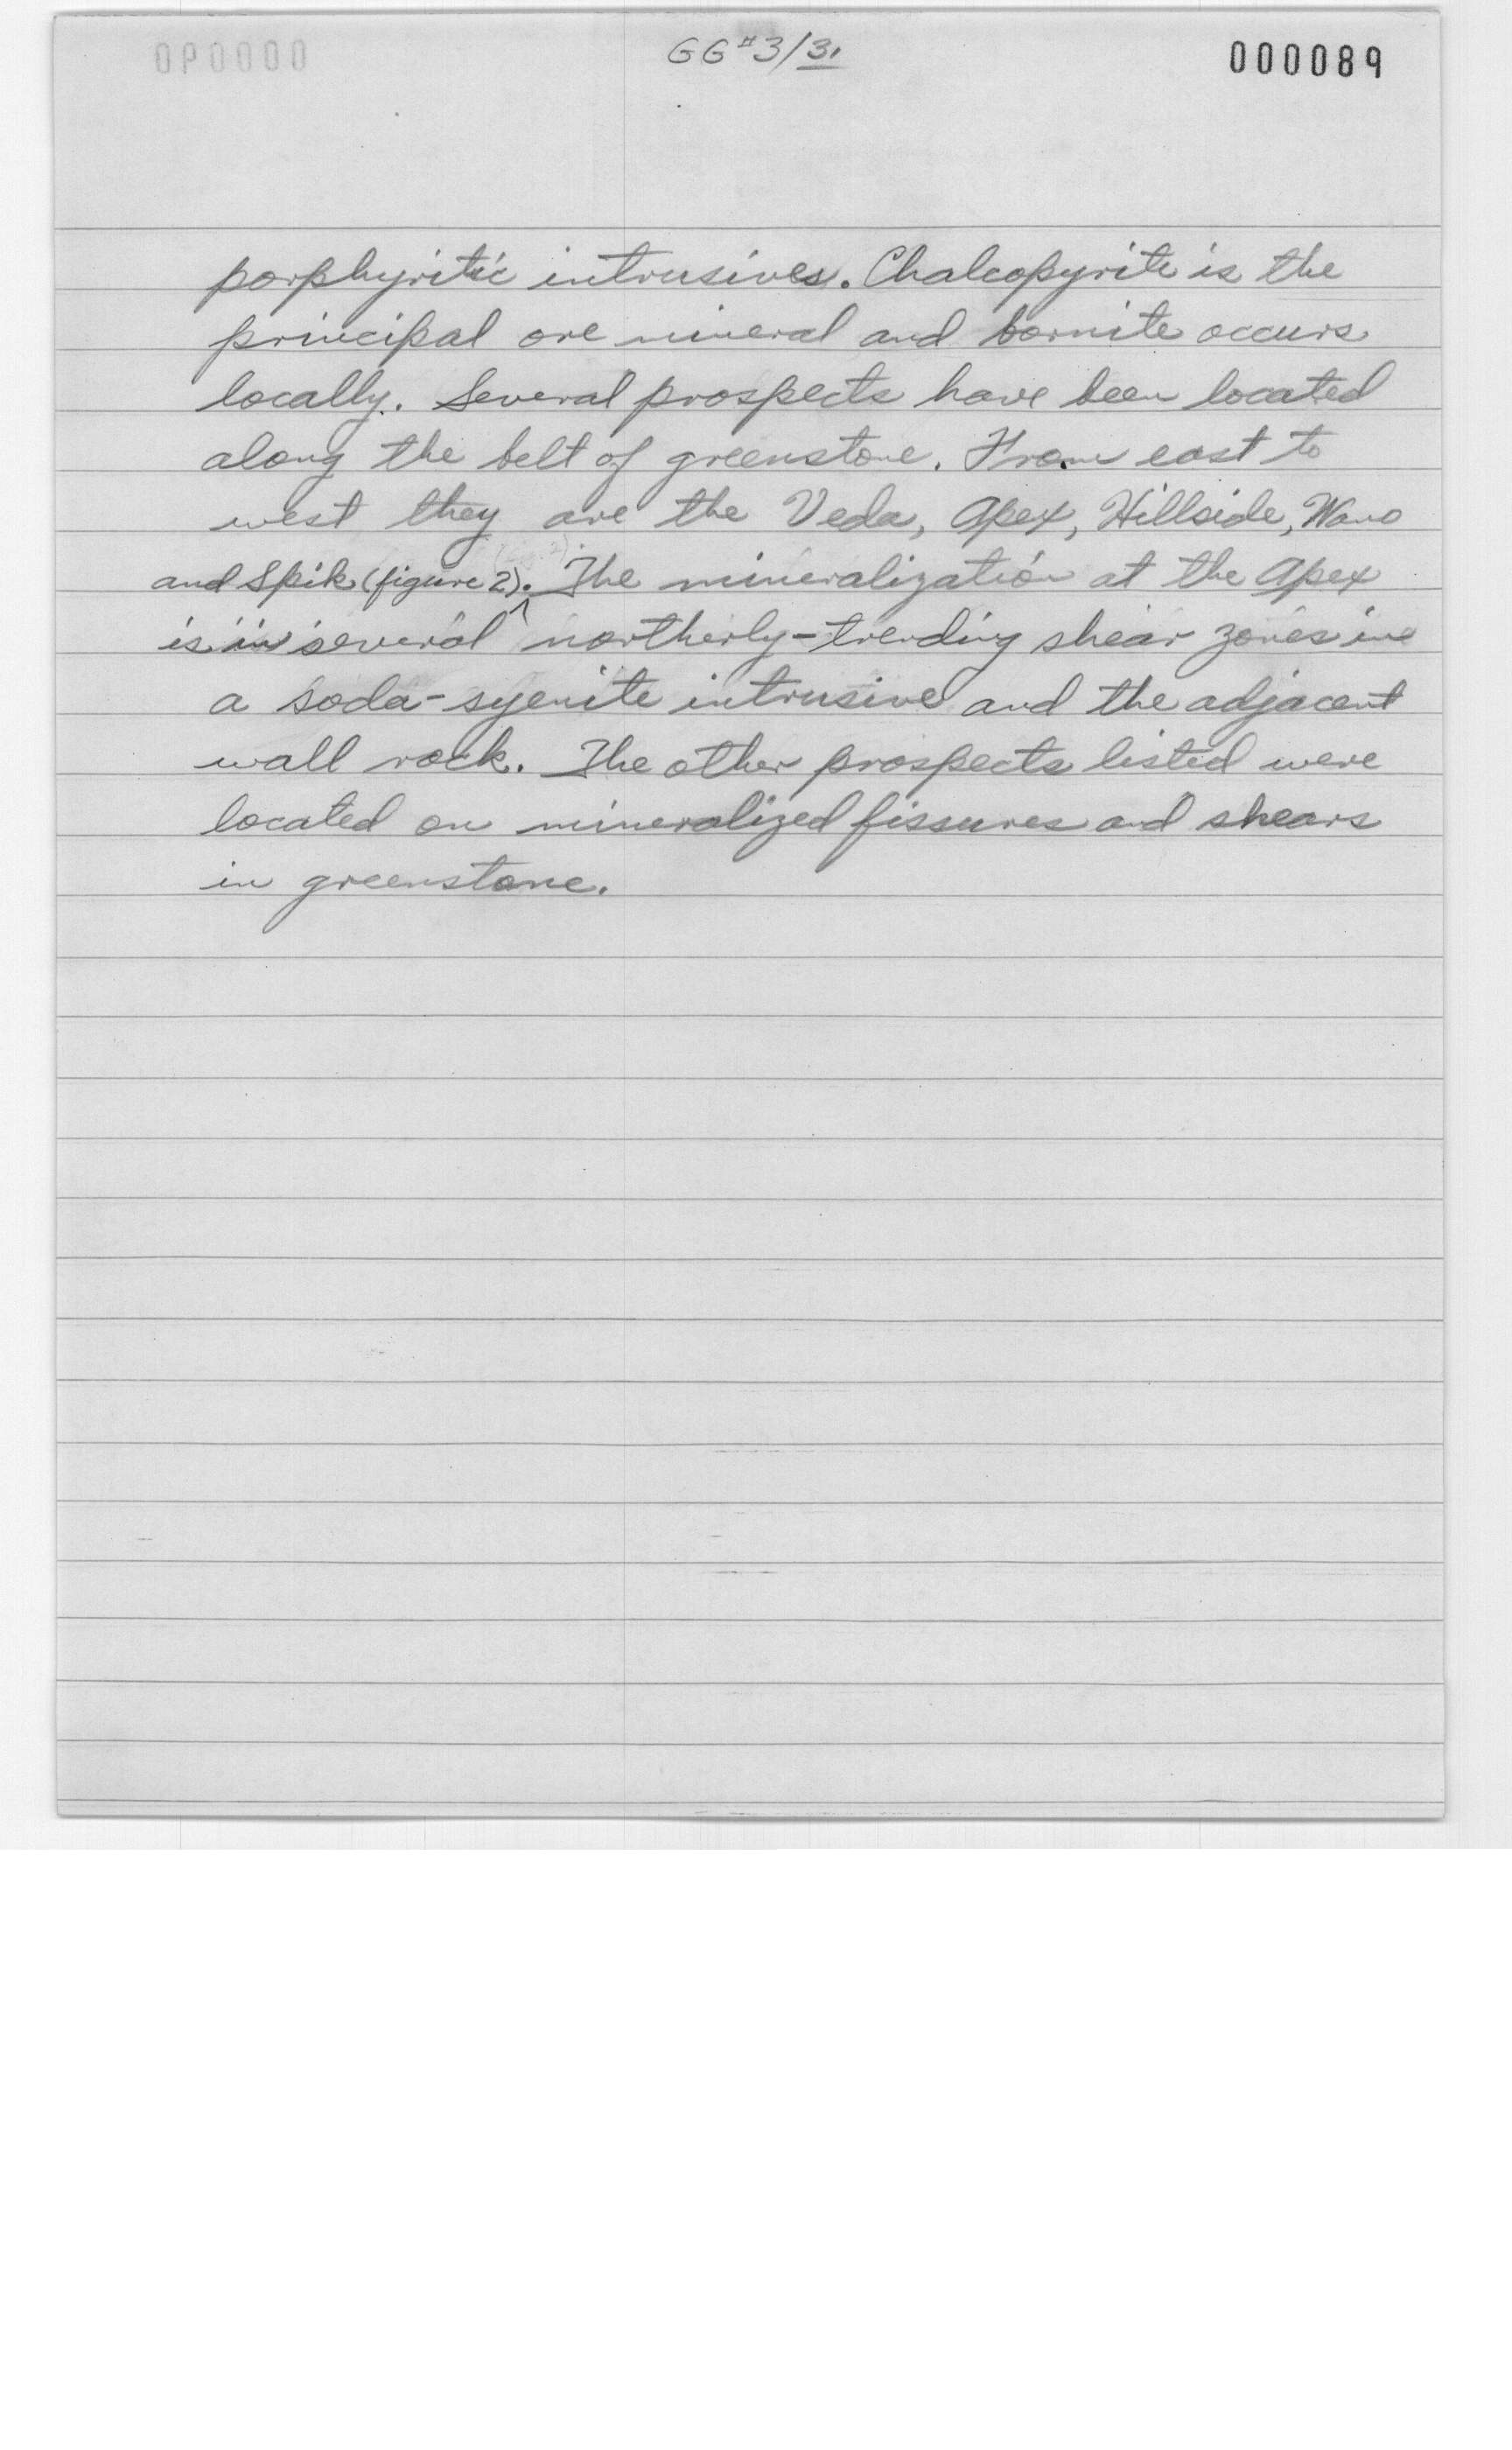 GG#3/31
000089
porphyritic intrusives. Chalcopyrite is the
principal ore mineral and bornite occurs
locally. Several prospects have been located
along the belt of greenstone. From east to
west they are the Veda, Apex, Hillside, Wano
and Spik (figure 2). The mineralization at the Apex
is in several northerly-trending shear zones in
a soda-syenite intrusive and the adjacent
wall rock. The other prospects listed were
located on mineralized fissures and shears
in greenstone.